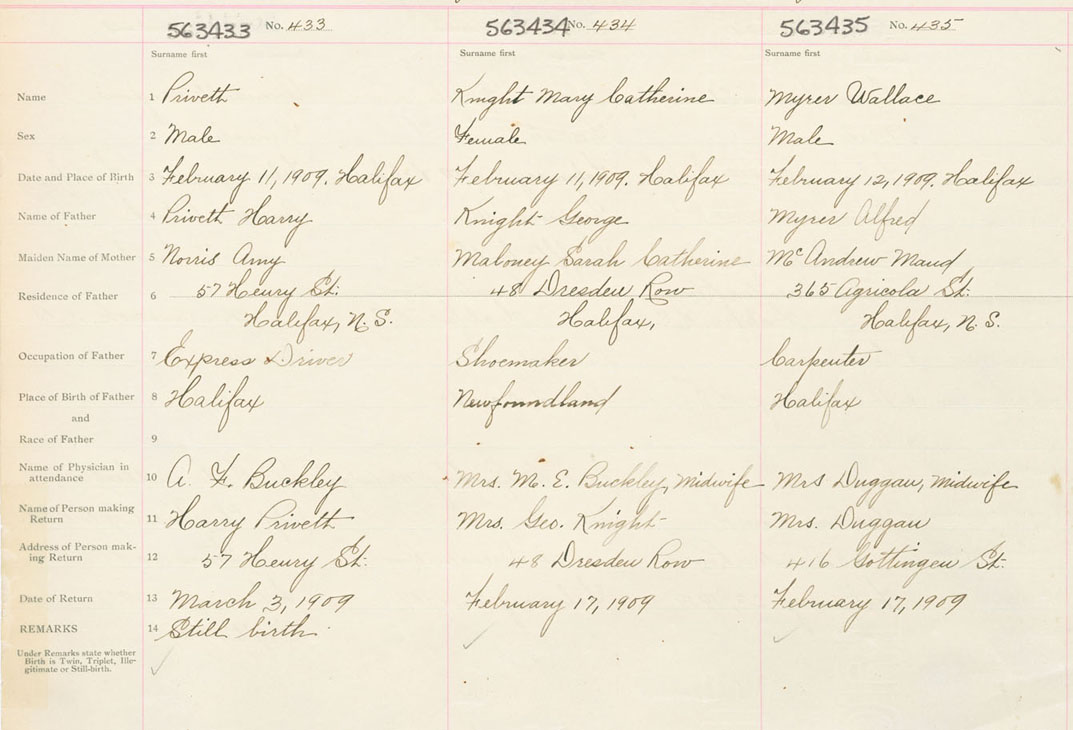 563433 No. 433 563434 No. 434 563435 No. 435
Surname first Surname first Surname first
Name 1 Privett Knight Mary Catherine Myrer Wallace
Sex 2 Male Female Male
Date and Place of Birth 3 February 11, 1909. Halifax February 11, 1909. Halifax February 12, 1909. Halifax
Name of Father 4 Privett Harry Knight George Myrer Alfred
Maiden Name of Mother 5 Norris Amy Maloney Sarah Catherine McAndrew Maud
Residence of Father 6 57 Henry St. 48 Dresden Row 365 Agricola St.
Halifax, N.S. Halifax, Halifax, N.S.
Occupation of Father 7 Express Driver Shoemaker Carpenter
Place of Birth of Father 8 Halifax Newfoundland Halifax
and
Race of Father 9
Name of Physician in
attendance 10 A. F. Buckley Mrs. M. E. Buckley, midwife Mrs Duggan, midwife
Name of Person making
Return 11 Harry Privett Mrs. Geo. Knight Mrs. Duggan
Address of Person mak-
ing Return 12 57 Henry St. 48 Dresden Row 416 Gottingen St.
Date of Return 13 March 3, 1909 February 17, 1909 February 17, 1909
REMARKS 14 Still birth
Under Remarks state whether
Birth is Twin, Triplet, Ille-
gitimate or Still-birth.